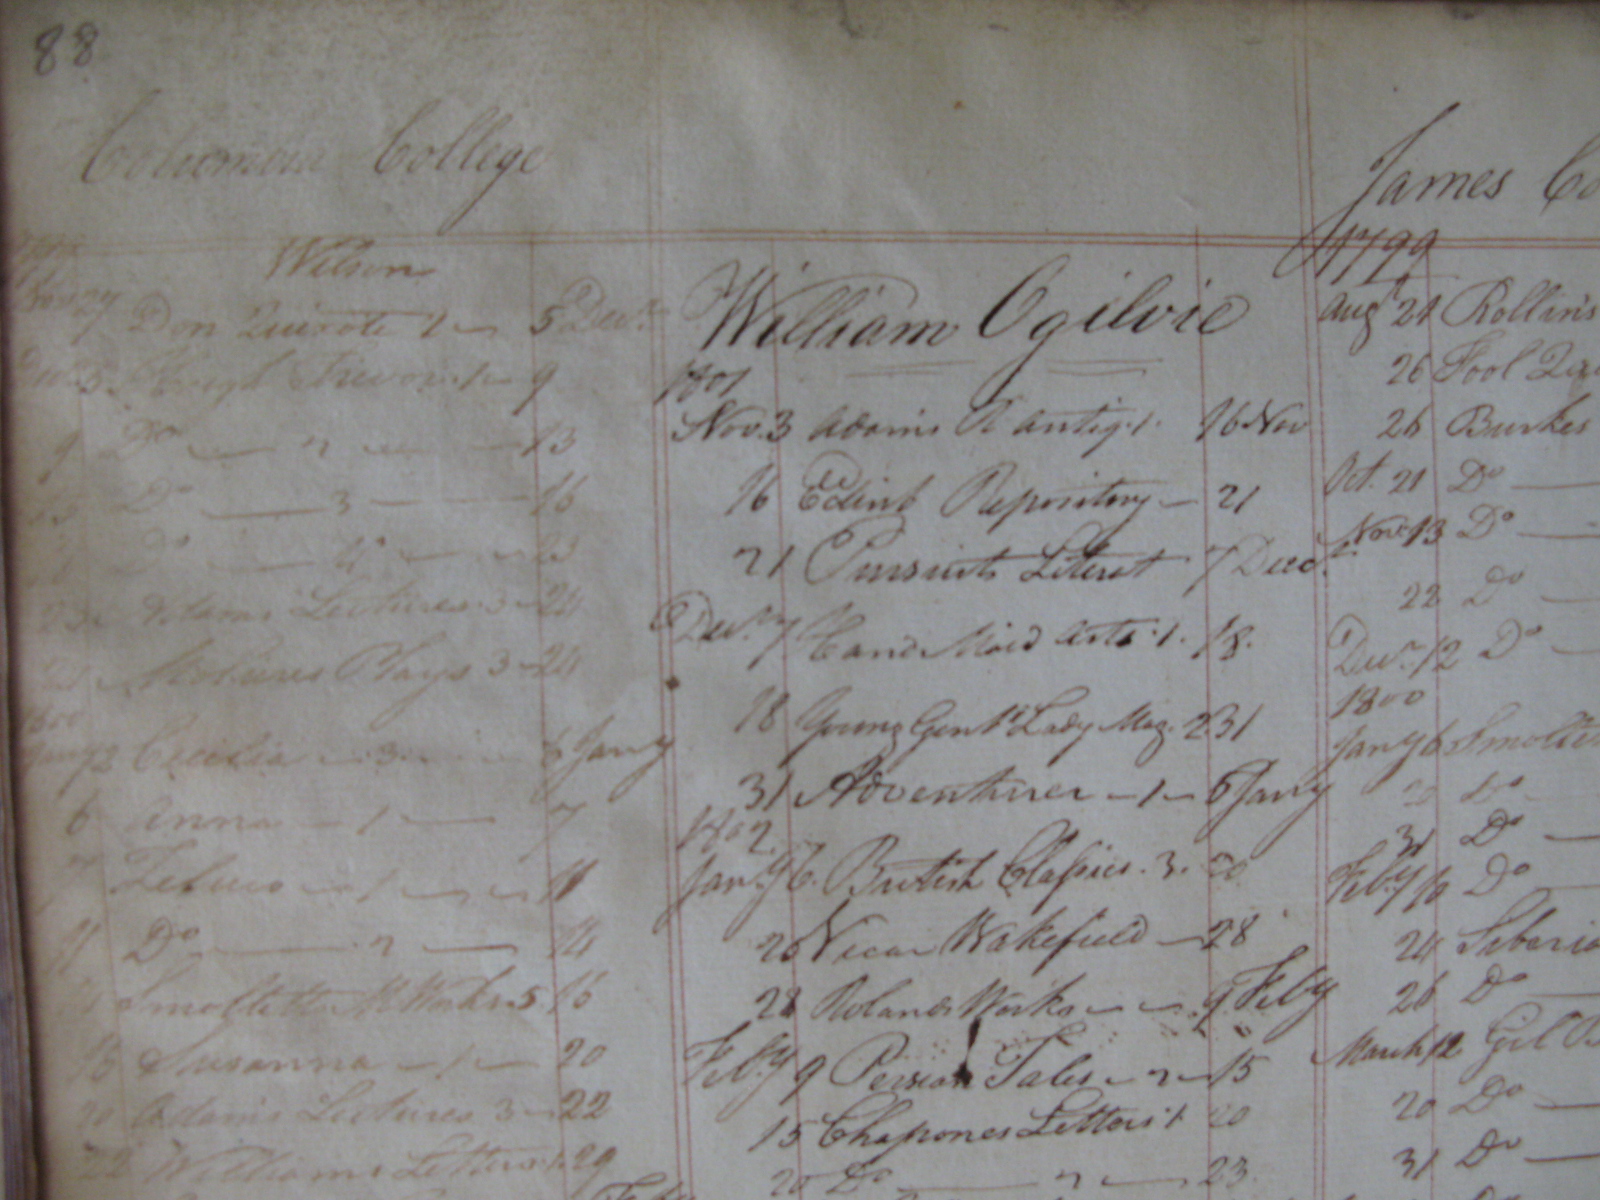 88
Columbia College
Wilson
Don Quixote 1 5 Decr
Hugh Trevor 1 9
9 Do 2 13
13 Do 3 16
Do 4
23 Adams Lectures 3 24
Plays 3 24
1800
Jany 2 Cecilia 3 6 Jany
6 Anna 1 7
7 Zeluco 1 11
11 Do 2 14
14 Smolletts M Works 5 16
16 Susanna 1 20
20 Adams Lectures 3 22
22 Williams Letters 1 29
William Ogilvie
1801
Nov. 3 Adams R Antiq. 1. 16 Nov
16 Edinb Repository 21
21 Pursuits Literat 7 Decr.
Decr. 7 Hand Maid Arts. 1. 18.
18 Young Gent & Lady Mag. 2 31
31 Adventurer 1 6 Jany
1802
Jany 6. British Classics. 3. 20
20 Vicar Wakefield 28
28 Rolands Works 9 Feby
Feby 9 Persian Tales 2 15
15 Chapones Letters 1 20
20 Do 2 23
James Co
1799
Augt 24 Rollins
26 Fool Qua
26 Burkes
Oct. 21 Do
Novr 13 Do
22 Do
Decr. 12 Do
1800
Jany 6 Smollet
20 Do
31 Do
Feby 10 Do
24 Siberia
26 Do
March 12 Gil B
20 Do
31 Do